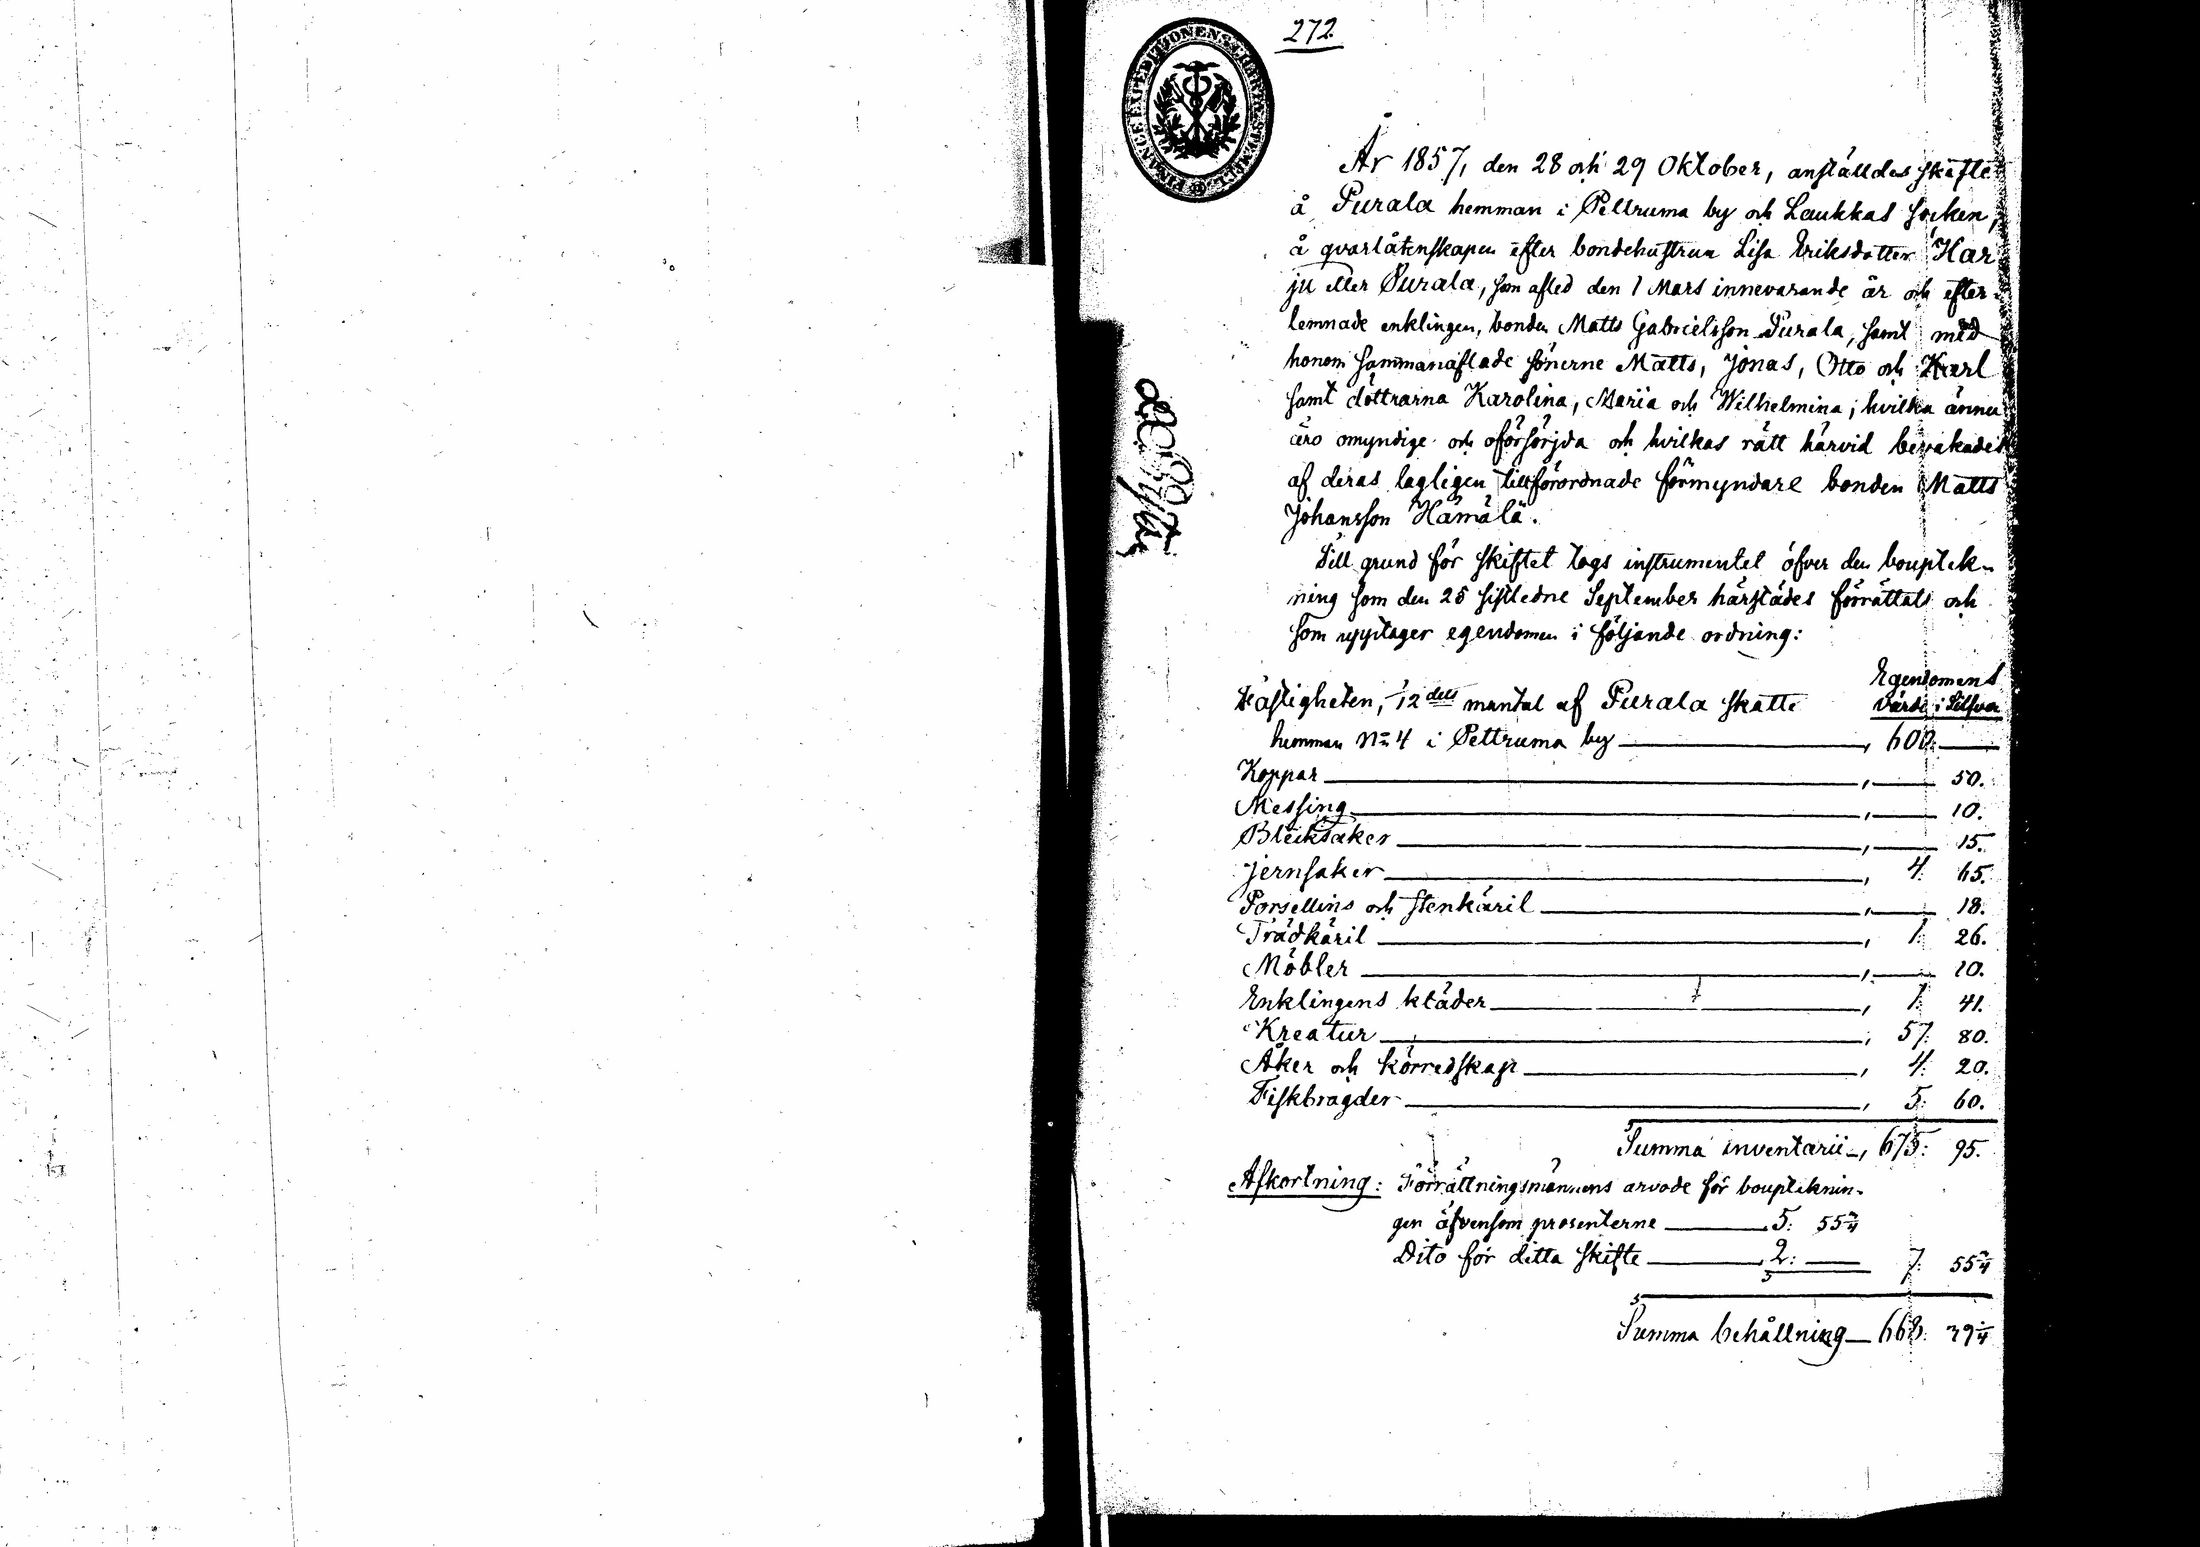 272.
FINANCE EXPEDITIONENS
År 1857, den 28 och 29 Oktober, anställdes skifte
å Purala hemman i Pellruma by och Laukkas socken,
å qvarlåtenskapen efter bondehustrun Lisa Eriksdotter Har
ju eller Purala, som afled den 1 Mars innevarande år och efter-
lemnade enklingen, bonden Matts Gabrielsson Purala, samt med
honom sammanaflade sönerne Matts, Jonas, Otto och Karl
samt döttrarna Karolina, Maria och Wilhelmina; hvilka ännu
äro omyndige och oförsörjda och hvilkas rätt härvid bevakades
af deras lagligen tillförordnade förmyndare bonden Matts
Johansson Hämälä.
Till grund för skiftet togs instrumentet öfver den bouptek-
ning som den 25 sistledne September härstädes förrättats och
som upptager egendomen i följande ordning:
Egendomens
värde i Silfver
Fastigheten, 1/12 dels mantal af Purala skatte
hemman No 4 i Pettruma by , 600:
Koppar , 50.
Messing , 10.
Blecksaker , 15.
Jernsaker , 4. 65.
Porsellins och stenkäril , 18.
Trädkäril , 1: 26.
Möbler , 10.
Enklingens kläder , 1: 41.
Kreatur , 57: 80.
Åker och körredskap , 4: 20.
Fiskbragder , 5: 60.
Summa inventarii , 675: 95.
Afkortning: Förrättningsmännens arvode för boupteknin-
gen äfvensom prosenterne 5: 55 3/4
Dito för detta skifte 2: 7: 55 3/4
Summa behållning 668: 39 1/4